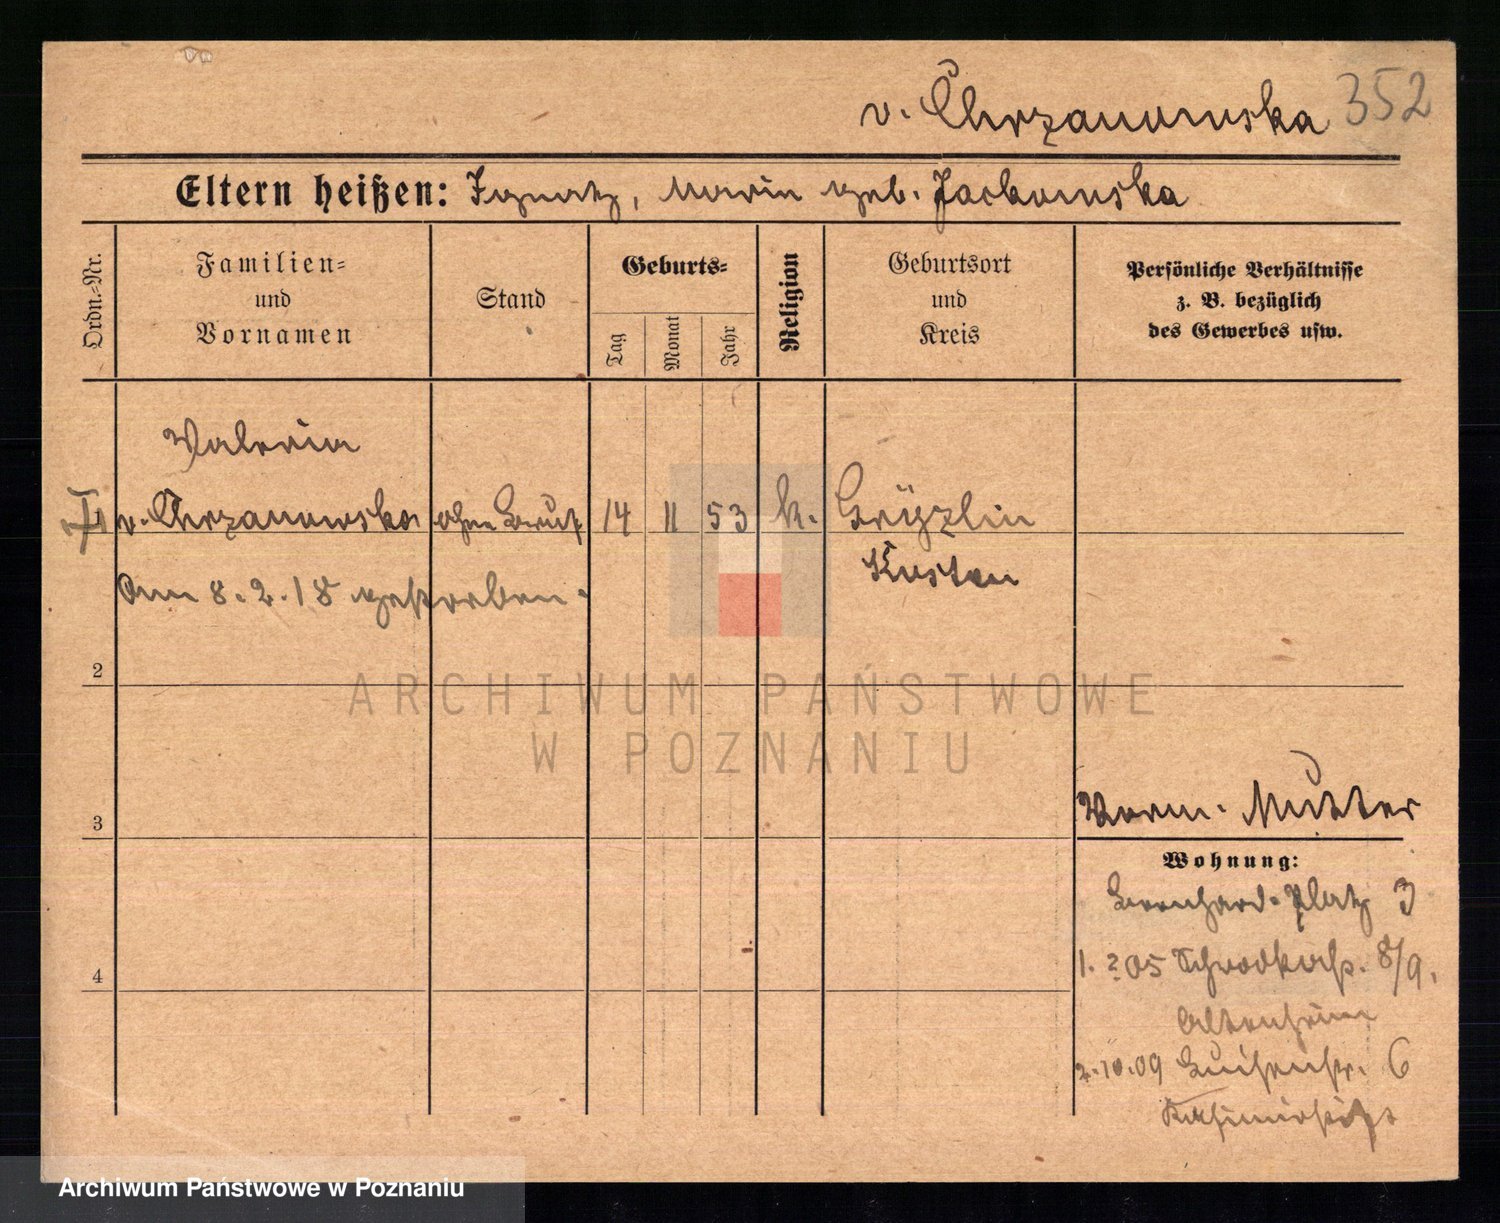 v. Chrzanowska 352
Eltern heißen: Ignatz, Maria geb. Jackowska
Ordn.=Nr.
Familien=
und
Vornamen
Stand
Geburts=
Tag
Monat
Jahr
Religion
Geburtsort
und
Kreis
Persönliche Verhältnisse
z. B. bezüglich
des Gewerbes usw.
Valeria
v. Chrzanowska ohne Beruf 14 11 53 k.
Kosten
Am 8.2.18 gestorben.
2
3
4
Mutter
Wohnung:
Bernhard-Platz 3
1. 2 05 Schrodkastr. 8/9.
Altenheim
2.10.09 Luisenstr. 6
ARCHIWUM PAŃSTWOWE
W POZNANIU
Archiwum Państwowe w Poznaniu